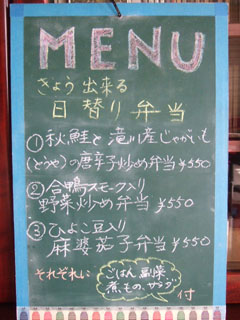 MENU
きょう出来る
日替り弁当
①秋鮭と滝川産じゃがいも
(とうや)の唐辛子炒め弁当¥550
②合鴨スモーク入り
野菜炒め弁当¥550
③ひよこ豆入り
麻婆茄子弁当¥550
それぞれに
ごはん 副菜
煮もの、サラダ
付